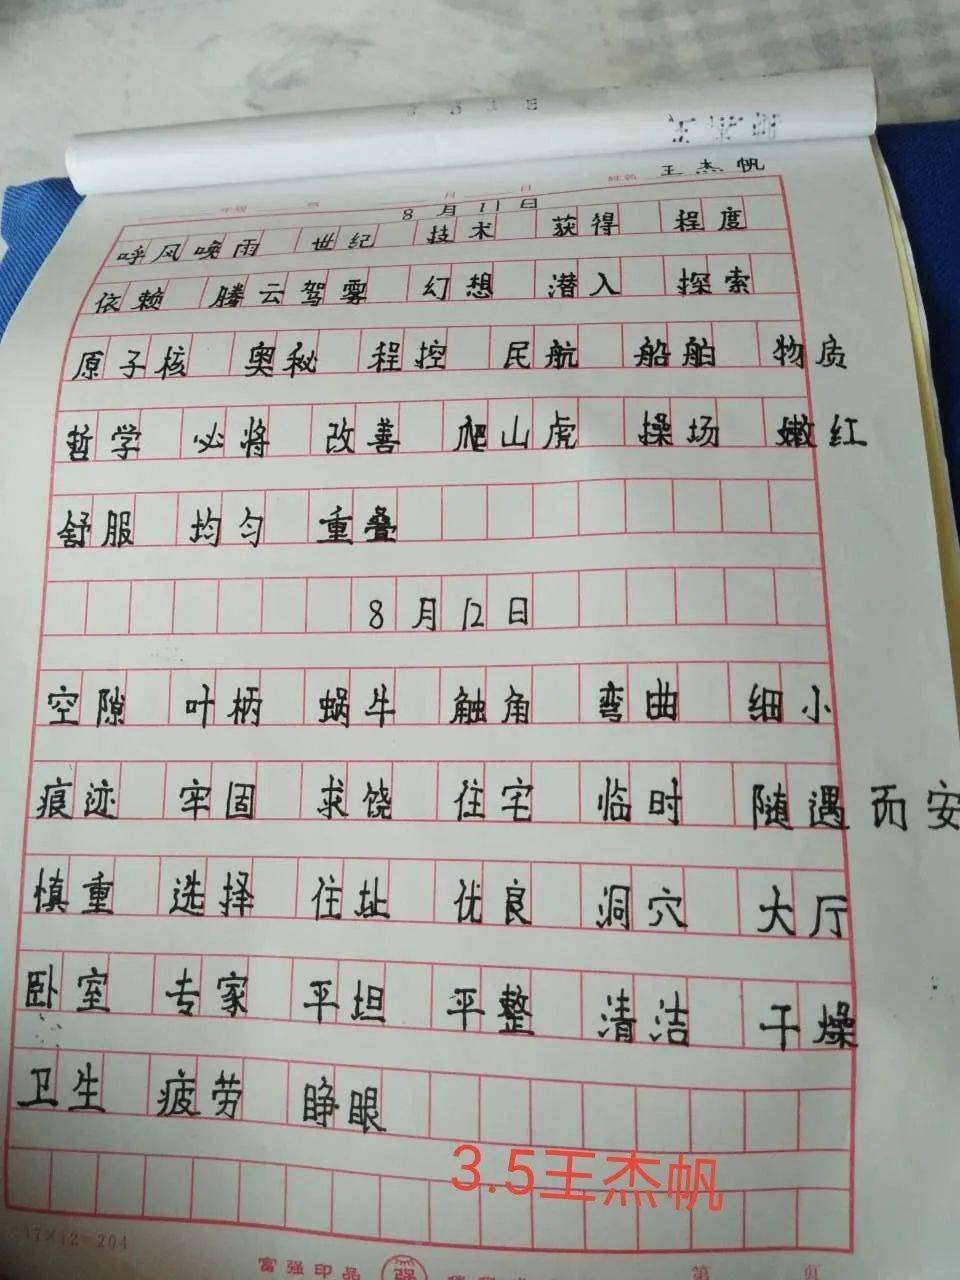 王杰帆
8月11日
呼风唤雨 世纪 技术 获得 程度
依赖 腾云驾雾 幻想 潜入 探索
原子核 奥秘 程控 民航 船舶 物质
哲学 必将 改善 爬山虎 操场 嫩红
舒服 均匀 重叠
8月12日
空隙 叶柄 蜗牛 触角 弯曲 细小
痕迹 牢固 求饶 住宅 临时 随遇而安
慎重 选择 住址 优良 洞穴 大厅
卧室 专家 平坦 平整 清洁 干燥
卫生 疲劳 睁眼
3.5王杰帆
17×12=204
富强印品 强 第 页